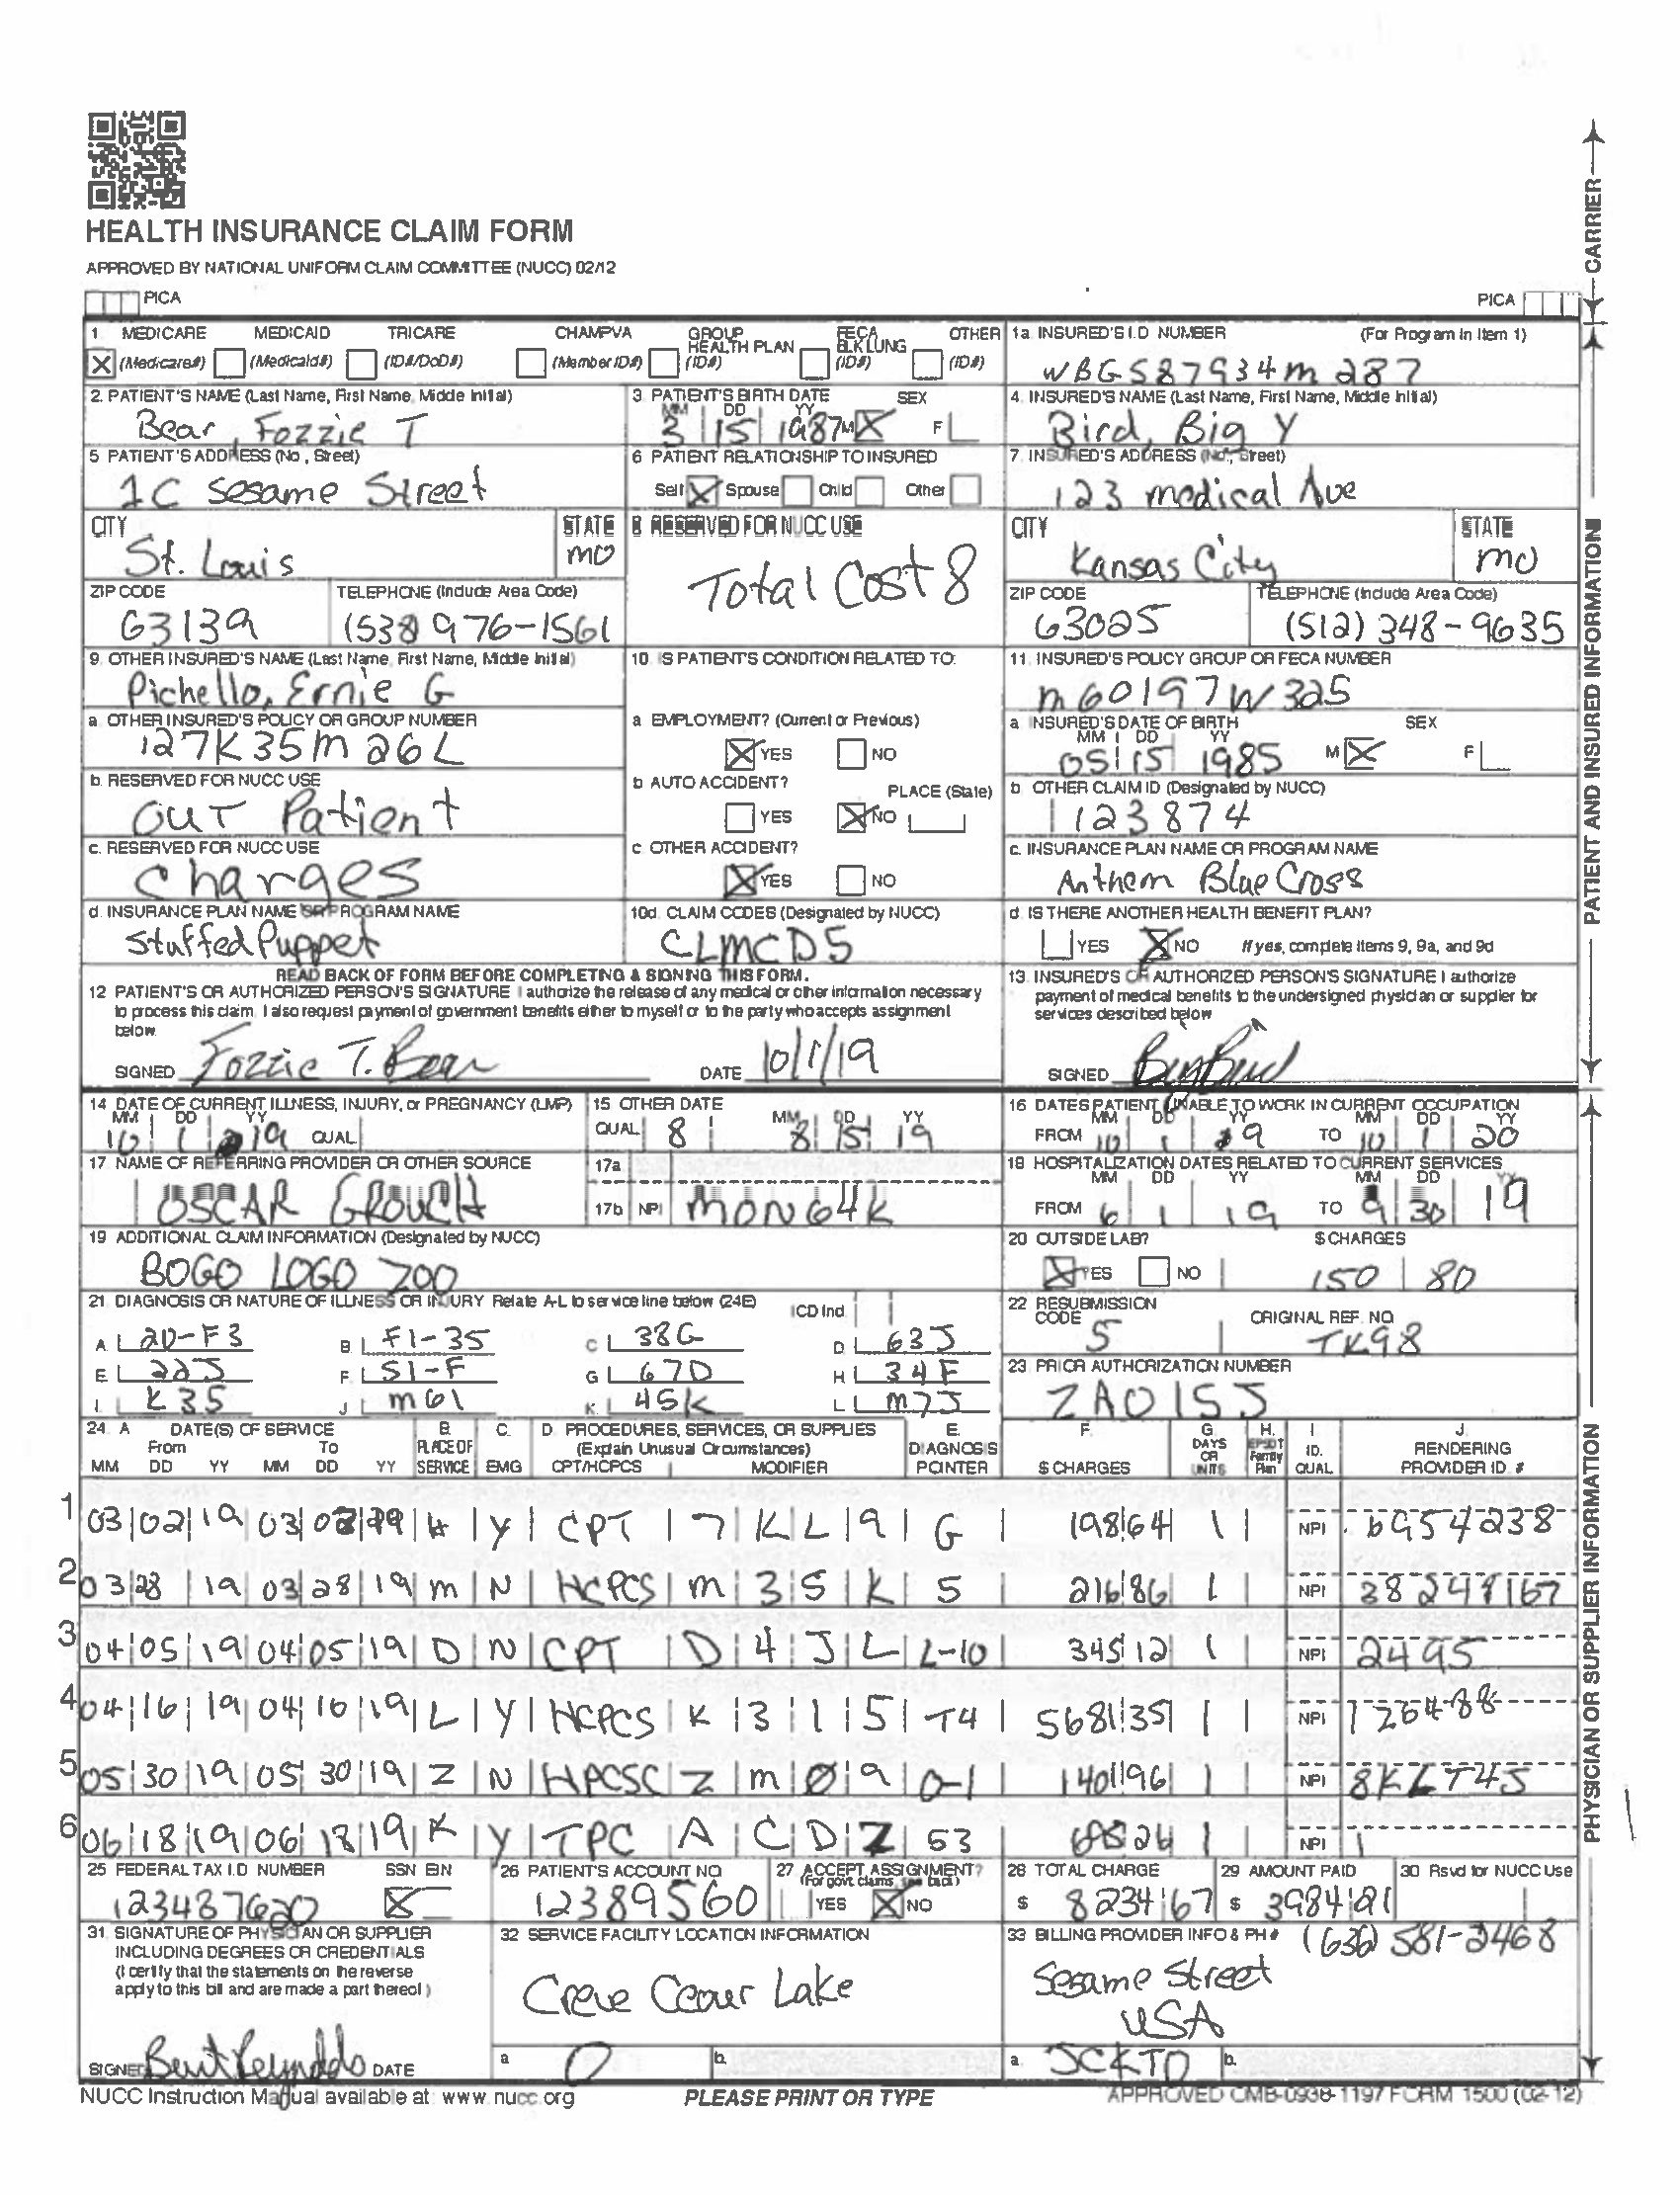 HEALTH INSURANCE CLAIM FORM
APPROVED BY NATIONAL UNIFORM CLAIM COMMITTEE (NUCC) 02/12
PICA
PICA
CARRIER
1. MEDICARE MEDICAID TRICARE CHAMPVA GROUP HEALTH PLAN FECA BLK LUNG OTHER
X (Medicare#) (Medicaid#) (ID#/DoD#) (Member ID#) (ID#) (ID#) (ID#)
1a. INSURED'S I.D. NUMBER (For Program in Item 1)
WBGS87934m287
2. PATIENT'S NAME (Last Name, First Name, Middle Initial)
Bear, Fozzie T
3. PATIENT'S BIRTH DATE SEX
MM DD YY
3 15 1987 M X F
4. INSURED'S NAME (Last Name, First Name, Middle Initial)
Bird, Big Y
5. PATIENT'S ADDRESS (No., Street)
1C Sesame Street
6. PATIENT RELATIONSHIP TO INSURED
Self X Spouse Child Other
7. INSURED'S ADDRESS (No., Street)
123 medical Ave
CITY STATE
St. Louis mo
8. RESERVED FOR NUCC USE
Total Cost 8
CITY STATE
Kansas City mo
ZIP CODE TELEPHONE (Include Area Code)
63139 (538) 976-1561
ZIP CODE TELEPHONE (Include Area Code)
63025 (512) 348-9635
9. OTHER INSURED'S NAME (Last Name, First Name, Middle Initial)
Pichello, Ernie G
10. IS PATIENT'S CONDITION RELATED TO:
11. INSURED'S POLICY GROUP OR FECA NUMBER
m60197W325
a. OTHER INSURED'S POLICY OR GROUP NUMBER
127K35m26L
a. EMPLOYMENT? (Current or Previous)
X YES NO
a. INSURED'S DATE OF BIRTH SEX
MM DD YY
05 15 1985 M X F
b. RESERVED FOR NUCC USE
OUT Patient
b. AUTO ACCIDENT? PLACE (State)
YES X NO
b. OTHER CLAIM ID (Designated by NUCC)
123874
c. RESERVED FOR NUCC USE
Charges
c. OTHER ACCIDENT?
X YES NO
c. INSURANCE PLAN NAME OR PROGRAM NAME
Anthem Blue Cross
d. INSURANCE PLAN NAME OR PROGRAM NAME
Stuffed Puppet
10d. CLAIM CODES (Designated by NUCC)
CLMCD5
d. IS THERE ANOTHER HEALTH BENEFIT PLAN?
YES X NO If yes, complete items 9, 9a, and 9d
READ BACK OF FORM BEFORE COMPLETING & SIGNING THIS FORM.
12. PATIENT'S OR AUTHORIZED PERSON'S SIGNATURE I authorize the release of any medical or other information necessary
to process this claim. I also request payment of government benefits either to myself or to the party who accepts assignment
below.
SIGNED Fozzie T. Bear DATE 10/1/19
13. INSURED'S OR AUTHORIZED PERSON'S SIGNATURE I authorize
payment of medical benefits to the undersigned physician or supplier for
services described below
SIGNED Big Bird
PATIENT AND INSURED INFORMATION
14. DATE OF CURRENT ILLNESS, INJURY, or PREGNANCY (LMP)
MM DD YY
10 1 19 QUAL
15. OTHER DATE MM DD YY
QUAL 8 8 15 19
16. DATES PATIENT UNABLE TO WORK IN CURRENT OCCUPATION
MM DD YY MM DD YY
FROM 10 1 19 TO 10 1 20
17. NAME OF REFERRING PROVIDER OR OTHER SOURCE
OSCAR GROUCH
17a.
17b. NPI MON64K
18. HOSPITALIZATION DATES RELATED TO CURRENT SERVICES
MM DD YY MM DD YY
FROM 6 1 19 TO 9 30 19
19. ADDITIONAL CLAIM INFORMATION (Designated by NUCC)
BOGO LOGO 700
20. OUTSIDE LAB? $ CHARGES
X YES NO 150 80
21. DIAGNOSIS OR NATURE OF ILLNESS OR INJURY Relate A-L to service line below (24E) ICD Ind.
A. 20-F3 B. F1-35 C. 38G D. 63J
E. 22J F. S1-F G. 67D H. 34F
I. K35 J. m61 K. 45K L. M7J
22. RESUBMISSION CODE ORIGINAL REF. NO.
5 TK98
23. PRIOR AUTHORIZATION NUMBER
ZA015J
24. A. DATE(S) OF SERVICE B. C. D. PROCEDURES, SERVICES, OR SUPPLIES E. F. G. H. I. J.
From To PLACE OF (Explain Unusual Circumstances) DIAGNOSIS DAYS OR UNITS EPSDT Family Plan ID. RENDERING
MM DD YY MM DD YY SERVICE EMG CPT/HCPCS MODIFIER POINTER $ CHARGES QUAL. PROVIDER ID. #
1 03 02 19 03 02 19 H Y CPT 7 K L 9 G 198 64 1 NPI 6954238
2 03 28 19 03 28 19 m N HCPCS m 3 5 K 5 216 86 1 NPI 38248167
3 04 05 19 04 05 19 D N CPT D 4 J L L-10 345 12 1 NPI 2495
4 04 16 19 04 16 19 L Y HCPCS K 3 1 5 T4 5681 35 1 NPI 726488
5 05 30 19 05 30 19 Z N HPCSC Z m 0 9 0-1 1401 96 1 NPI 8KLT45
6 06 18 19 06 18 19 K Y TPC A C D Z 53 26 1 NPI 1
25. FEDERAL TAX I.D. NUMBER SSN EIN
123487620 X
26. PATIENT'S ACCOUNT NO.
12389560
27. ACCEPT ASSIGNMENT?
(For govt. claims, see back)
YES X NO
28. TOTAL CHARGE
$ 8234 67
29. AMOUNT PAID
$ 3984 21
30. Rsvd for NUCC Use
31. SIGNATURE OF PHYSICIAN OR SUPPLIER
INCLUDING DEGREES OR CREDENTIALS
(I certify that the statements on the reverse
apply to this bill and are made a part thereof.)
SIGNED Burt Reynolds DATE
32. SERVICE FACILITY LOCATION INFORMATION
Creve Ceour Lake
a. 0 b.
33. BILLING PROVIDER INFO & PH # (636) 581-2468
Sesame Street
USA
a. JCKTD b.
PHYSICIAN OR SUPPLIER INFORMATION
NUCC Instruction Manual available at: www.nucc.org
PLEASE PRINT OR TYPE
APPROVED OMB-0938-1197 FORM 1500 (02-12)